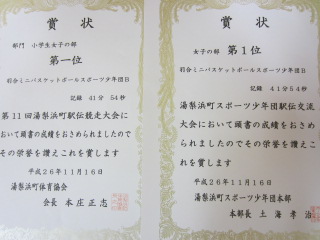 賞状
部門 小学生女子の部
第一位
羽合ミニバスケットボールスポーツ少年団B
記録 41分54秒
第11回湯梨浜町駅伝競走大会に
おいて頭書の成績をおさめられましたので
その栄誉を讃えこれを賞します
平成26年11月16日
湯梨浜町体育協会
会長 本庄正志
賞状
女子の部 第1位
羽合ミニバスケットボールスポーツ少年団B
記録 41分54秒
湯梨浜町スポーツ少年団駅伝交流
大会において頭書の成績をおさめ
られましたのでその栄誉を讃えこ
れを賞します
平成26年11月16日
湯梨浜町スポーツ少年団本部
本部長 土海孝治